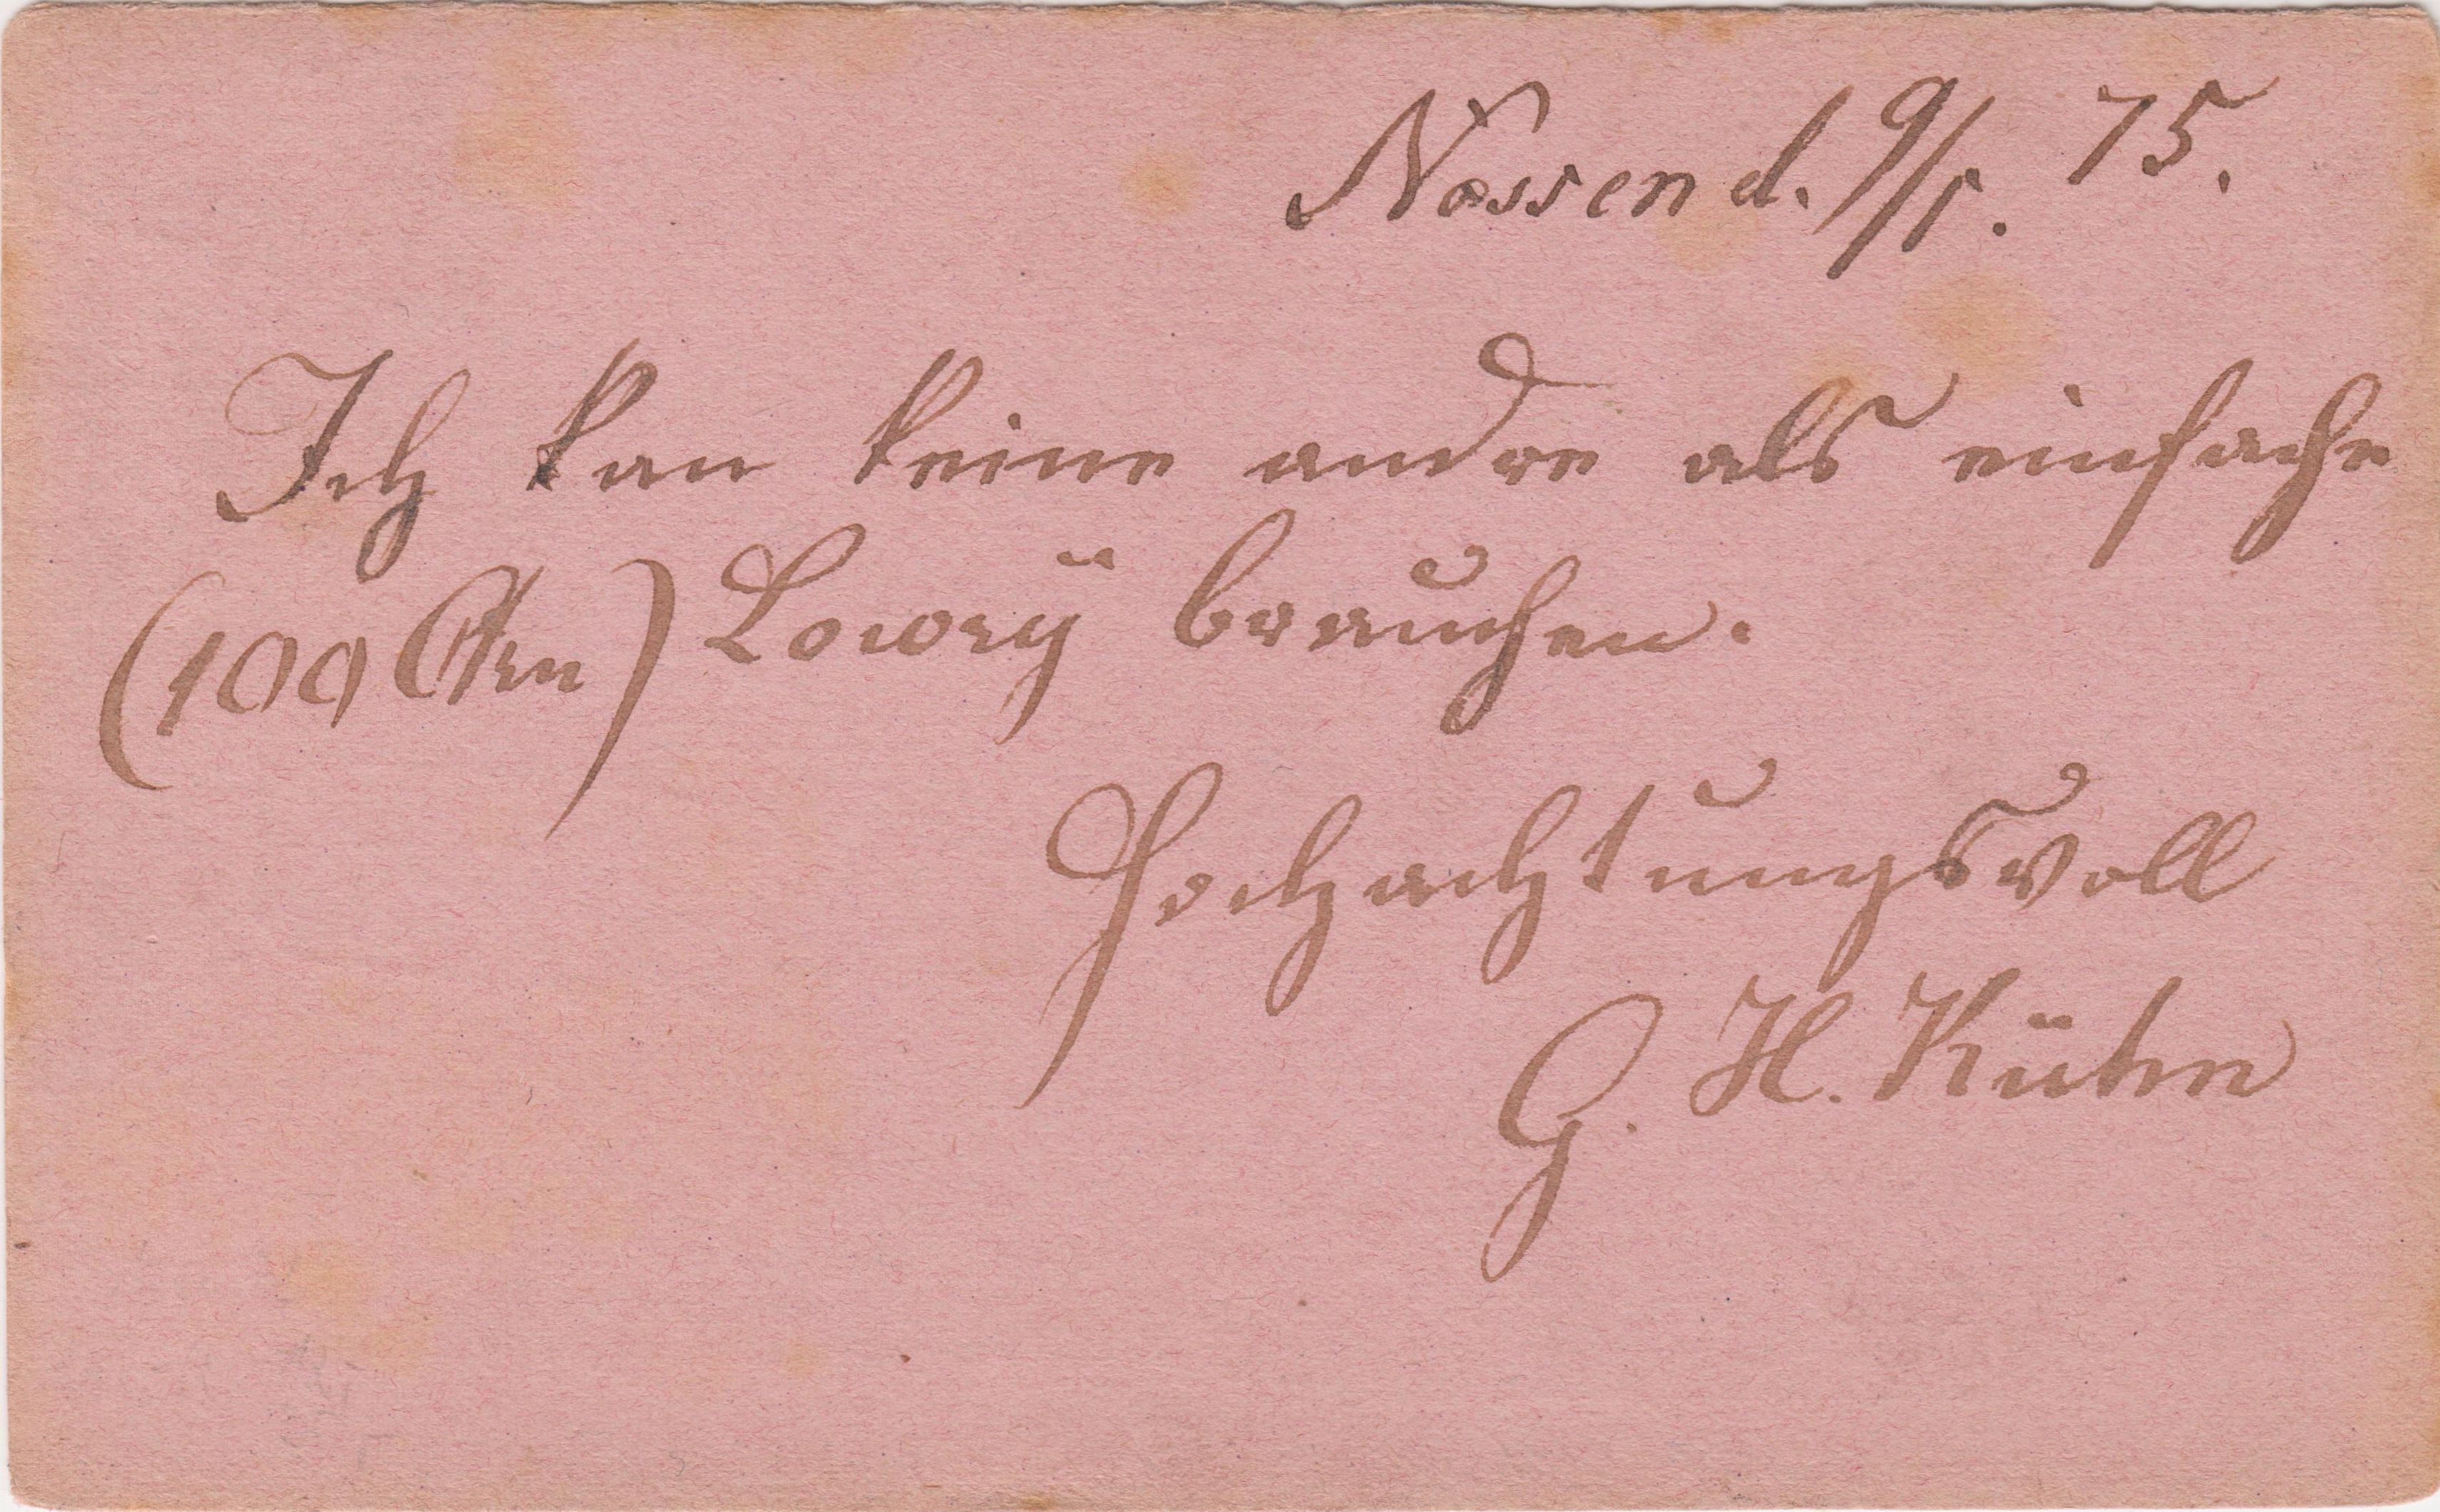 Nossen d. 9/1. 75.
Ich kan keine andre als einfache
(100 Ctr) Lowrÿ brauchen.
Hochachtungsvoll
G. H. Kühn